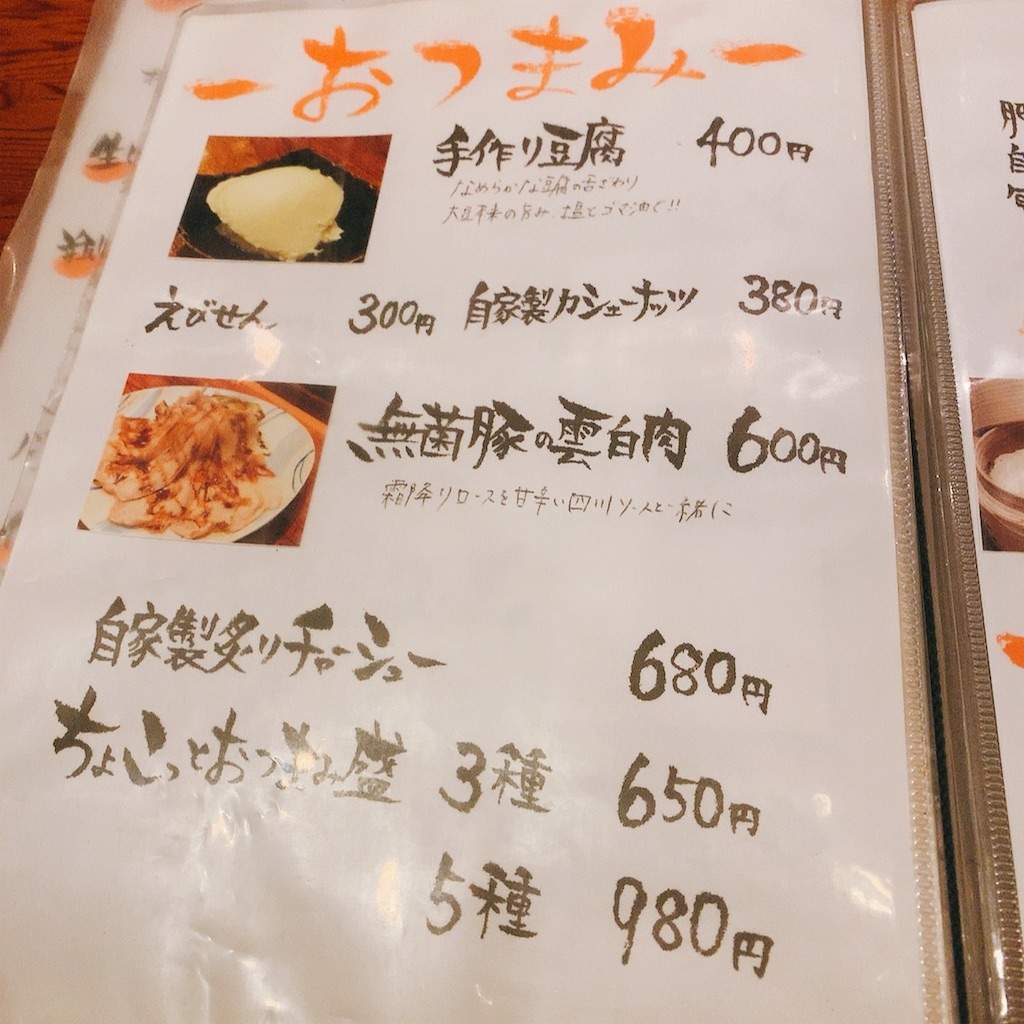 ーおつまみー
手作り豆腐 400円
なめらかな豆腐の舌ざわり
大豆本来の旨み、塩とゴマ油で!!
えびせん 300円 自家製カシューナッツ 380円
無菌豚の雲白肉 600円
霜降りロースを甘辛い四川ソースと一緒に
自家製炙りチャーシュー 680円
ちょこっとおつまみ盛 3種 650円
5種 980円
肥
自